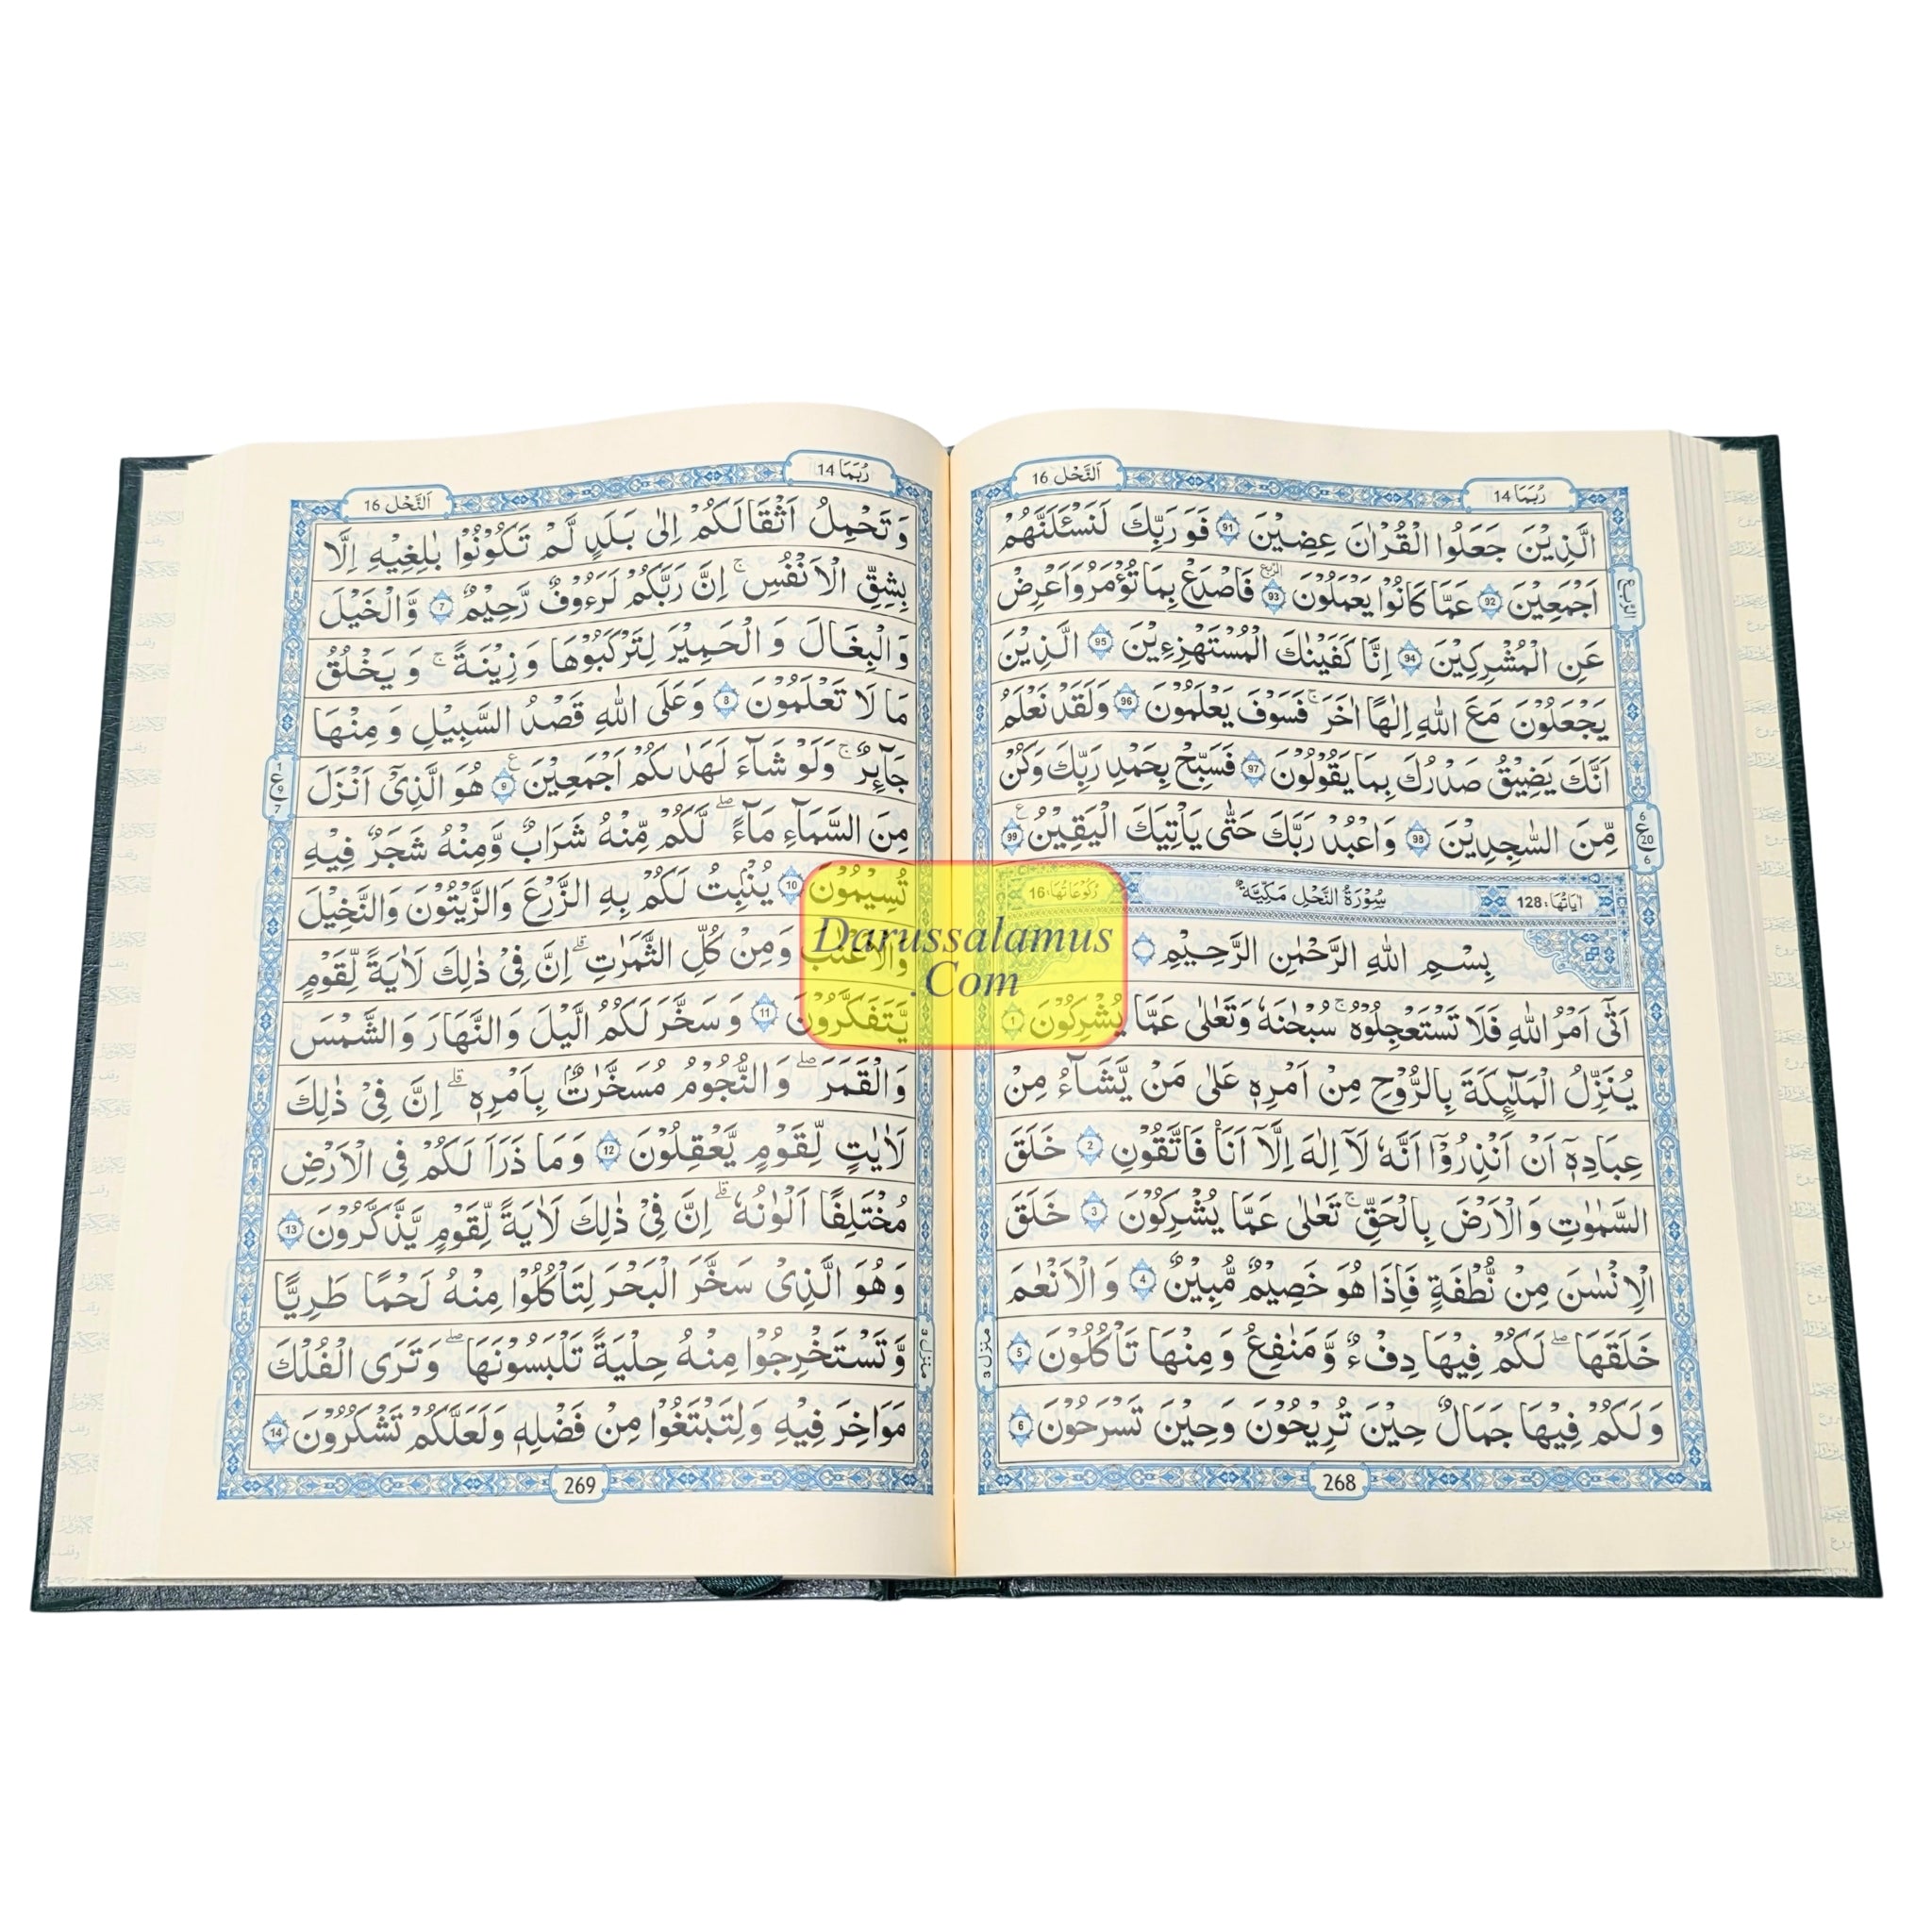 اَلنَّحْل 16
رُبَمَا 14
الَّذِيْنَ جَعَلُوا الْقُرْاٰنَ عِضِيْنَ 91 فَوَرَبِّكَ لَنَسْـَٔلَنَّهُمْ
اَجْمَعِيْنَ 92 عَمَّا كَانُوْا يَعْمَلُوْنَ 93 فَاصْدَعْ بِمَا تُؤْمَرُ وَاَعْرِضْ
الربع
عَنِ الْمُشْرِكِيْنَ 94 اِنَّا كَفَيْنٰكَ الْمُسْتَهْزِءِيْنَ 95 الَّذِيْنَ
يَجْعَلُوْنَ مَعَ اللّٰهِ اِلٰهًا اٰخَرَ ۚ فَسَوْفَ يَعْلَمُوْنَ 96 وَلَقَدْ نَعْلَمُ
اَنَّكَ يَضِيْقُ صَدْرُكَ بِمَا يَقُوْلُوْنَ 97 فَسَبِّحْ بِحَمْدِ رَبِّكَ وَكُنْ
مِّنَ السّٰجِدِيْنَ 98 وَاعْبُدْ رَبَّكَ حَتّٰى يَاْتِيَكَ الْيَقِيْنُ 99
6 ع 20 6
اٰيَاتُهَا: 128 سُوْرَةُ النَّحْلِ مَكِّيَّةٌ رُكُوْعَاتُهَا: 16
بِسْمِ اللّٰهِ الرَّحْمٰنِ الرَّحِيْمِ
اَتٰٓى اَمْرُ اللّٰهِ فَلَا تَسْتَعْجِلُوْهُ ۚ سُبْحٰنَهٗ وَتَعٰلٰى عَمَّا يُشْرِكُوْنَ 1
يُنَزِّلُ الْمَلٰٓئِكَةَ بِالرُّوْحِ مِنْ اَمْرِهٖ عَلٰى مَنْ يَّشَآءُ مِنْ
عِبَادِهٖٓ اَنْ اَنْذِرُوْٓا اَنَّهٗ لَآ اِلٰهَ اِلَّآ اَنَا فَاتَّقُوْنِ 2 خَلَقَ
السَّمٰوٰتِ وَالْاَرْضَ بِالْحَقِّ ۚ تَعٰلٰى عَمَّا يُشْرِكُوْنَ 3 خَلَقَ
الْاِنْسٰنَ مِنْ نُّطْفَةٍ فَاِذَا هُوَ خَصِيْمٌ مُّبِيْنٌ 4 وَالْاَنْعٰمَ
خَلَقَهَا ۖ لَكُمْ فِيْهَا دِفْءٌ وَّمَنٰفِعُ وَمِنْهَا تَاْكُلُوْنَ 5
وَلَكُمْ فِيْهَا جَمَالٌ حِيْنَ تُرِيْحُوْنَ وَحِيْنَ تَسْرَحُوْنَ 6
منزل 3
268
رُبَمَا 14
اَلنَّحْل 16
وَتَحْمِلُ اَثْقَالَكُمْ اِلٰى بَلَدٍ لَّمْ تَكُوْنُوْا بٰلِغِيْهِ اِلَّا
بِشِقِّ الْاَنْفُسِ ۚ اِنَّ رَبَّكُمْ لَرَءُوْفٌ رَّحِيْمٌ 7 وَّالْخَيْلَ
وَالْبِغَالَ وَالْحَمِيْرَ لِتَرْكَبُوْهَا وَزِيْنَةً ۚ وَيَخْلُقُ
مَا لَا تَعْلَمُوْنَ 8 وَعَلَى اللّٰهِ قَصْدُ السَّبِيْلِ وَمِنْهَا
جَآئِرٌ ۚ وَلَوْ شَآءَ لَهَدٰىكُمْ اَجْمَعِيْنَ 9 هُوَ الَّذِيْٓ اَنْزَلَ
1 ع 9 7
مِنَ السَّمَآءِ مَآءً ۖ لَّكُمْ مِّنْهُ شَرَابٌ وَّمِنْهُ شَجَرٌ فِيْهِ
تُسِيْمُوْنَ 10 يُنْۢبِتُ لَكُمْ بِهِ الزَّرْعَ وَالزَّيْتُوْنَ وَالنَّخِيْلَ
وَالْاَعْنٰبَ وَمِنْ كُلِّ الثَّمَرٰتِ ۗ اِنَّ فِيْ ذٰلِكَ لَاٰيَةً لِّقَوْمٍ
يَّتَفَكَّرُوْنَ 11 وَسَخَّرَ لَكُمُ الَّيْلَ وَالنَّهَارَ وَالشَّمْسَ
وَالْقَمَرَ ۖ وَالنُّجُوْمُ مُسَخَّرٰتٌۢ بِاَمْرِهٖ ۗ اِنَّ فِيْ ذٰلِكَ
لَاٰيٰتٍ لِّقَوْمٍ يَّعْقِلُوْنَ 12 وَمَا ذَرَاَ لَكُمْ فِى الْاَرْضِ
مُخْتَلِفًا اَلْوَانُهٗ ۗ اِنَّ فِيْ ذٰلِكَ لَاٰيَةً لِّقَوْمٍ يَّذَّكَّرُوْنَ 13
وَهُوَ الَّذِيْ سَخَّرَ الْبَحْرَ لِتَاْكُلُوْا مِنْهُ لَحْمًا طَرِيًّا
وَّتَسْتَخْرِجُوْا مِنْهُ حِلْيَةً تَلْبَسُوْنَهَا ۖ وَتَرَى الْفُلْكَ
مَوَاخِرَ فِيْهِ وَلِتَبْتَغُوْا مِنْ فَضْلِهٖ وَلَعَلَّكُمْ تَشْكُرُوْنَ 14
منزل 3
269
Darussalamus
.Com